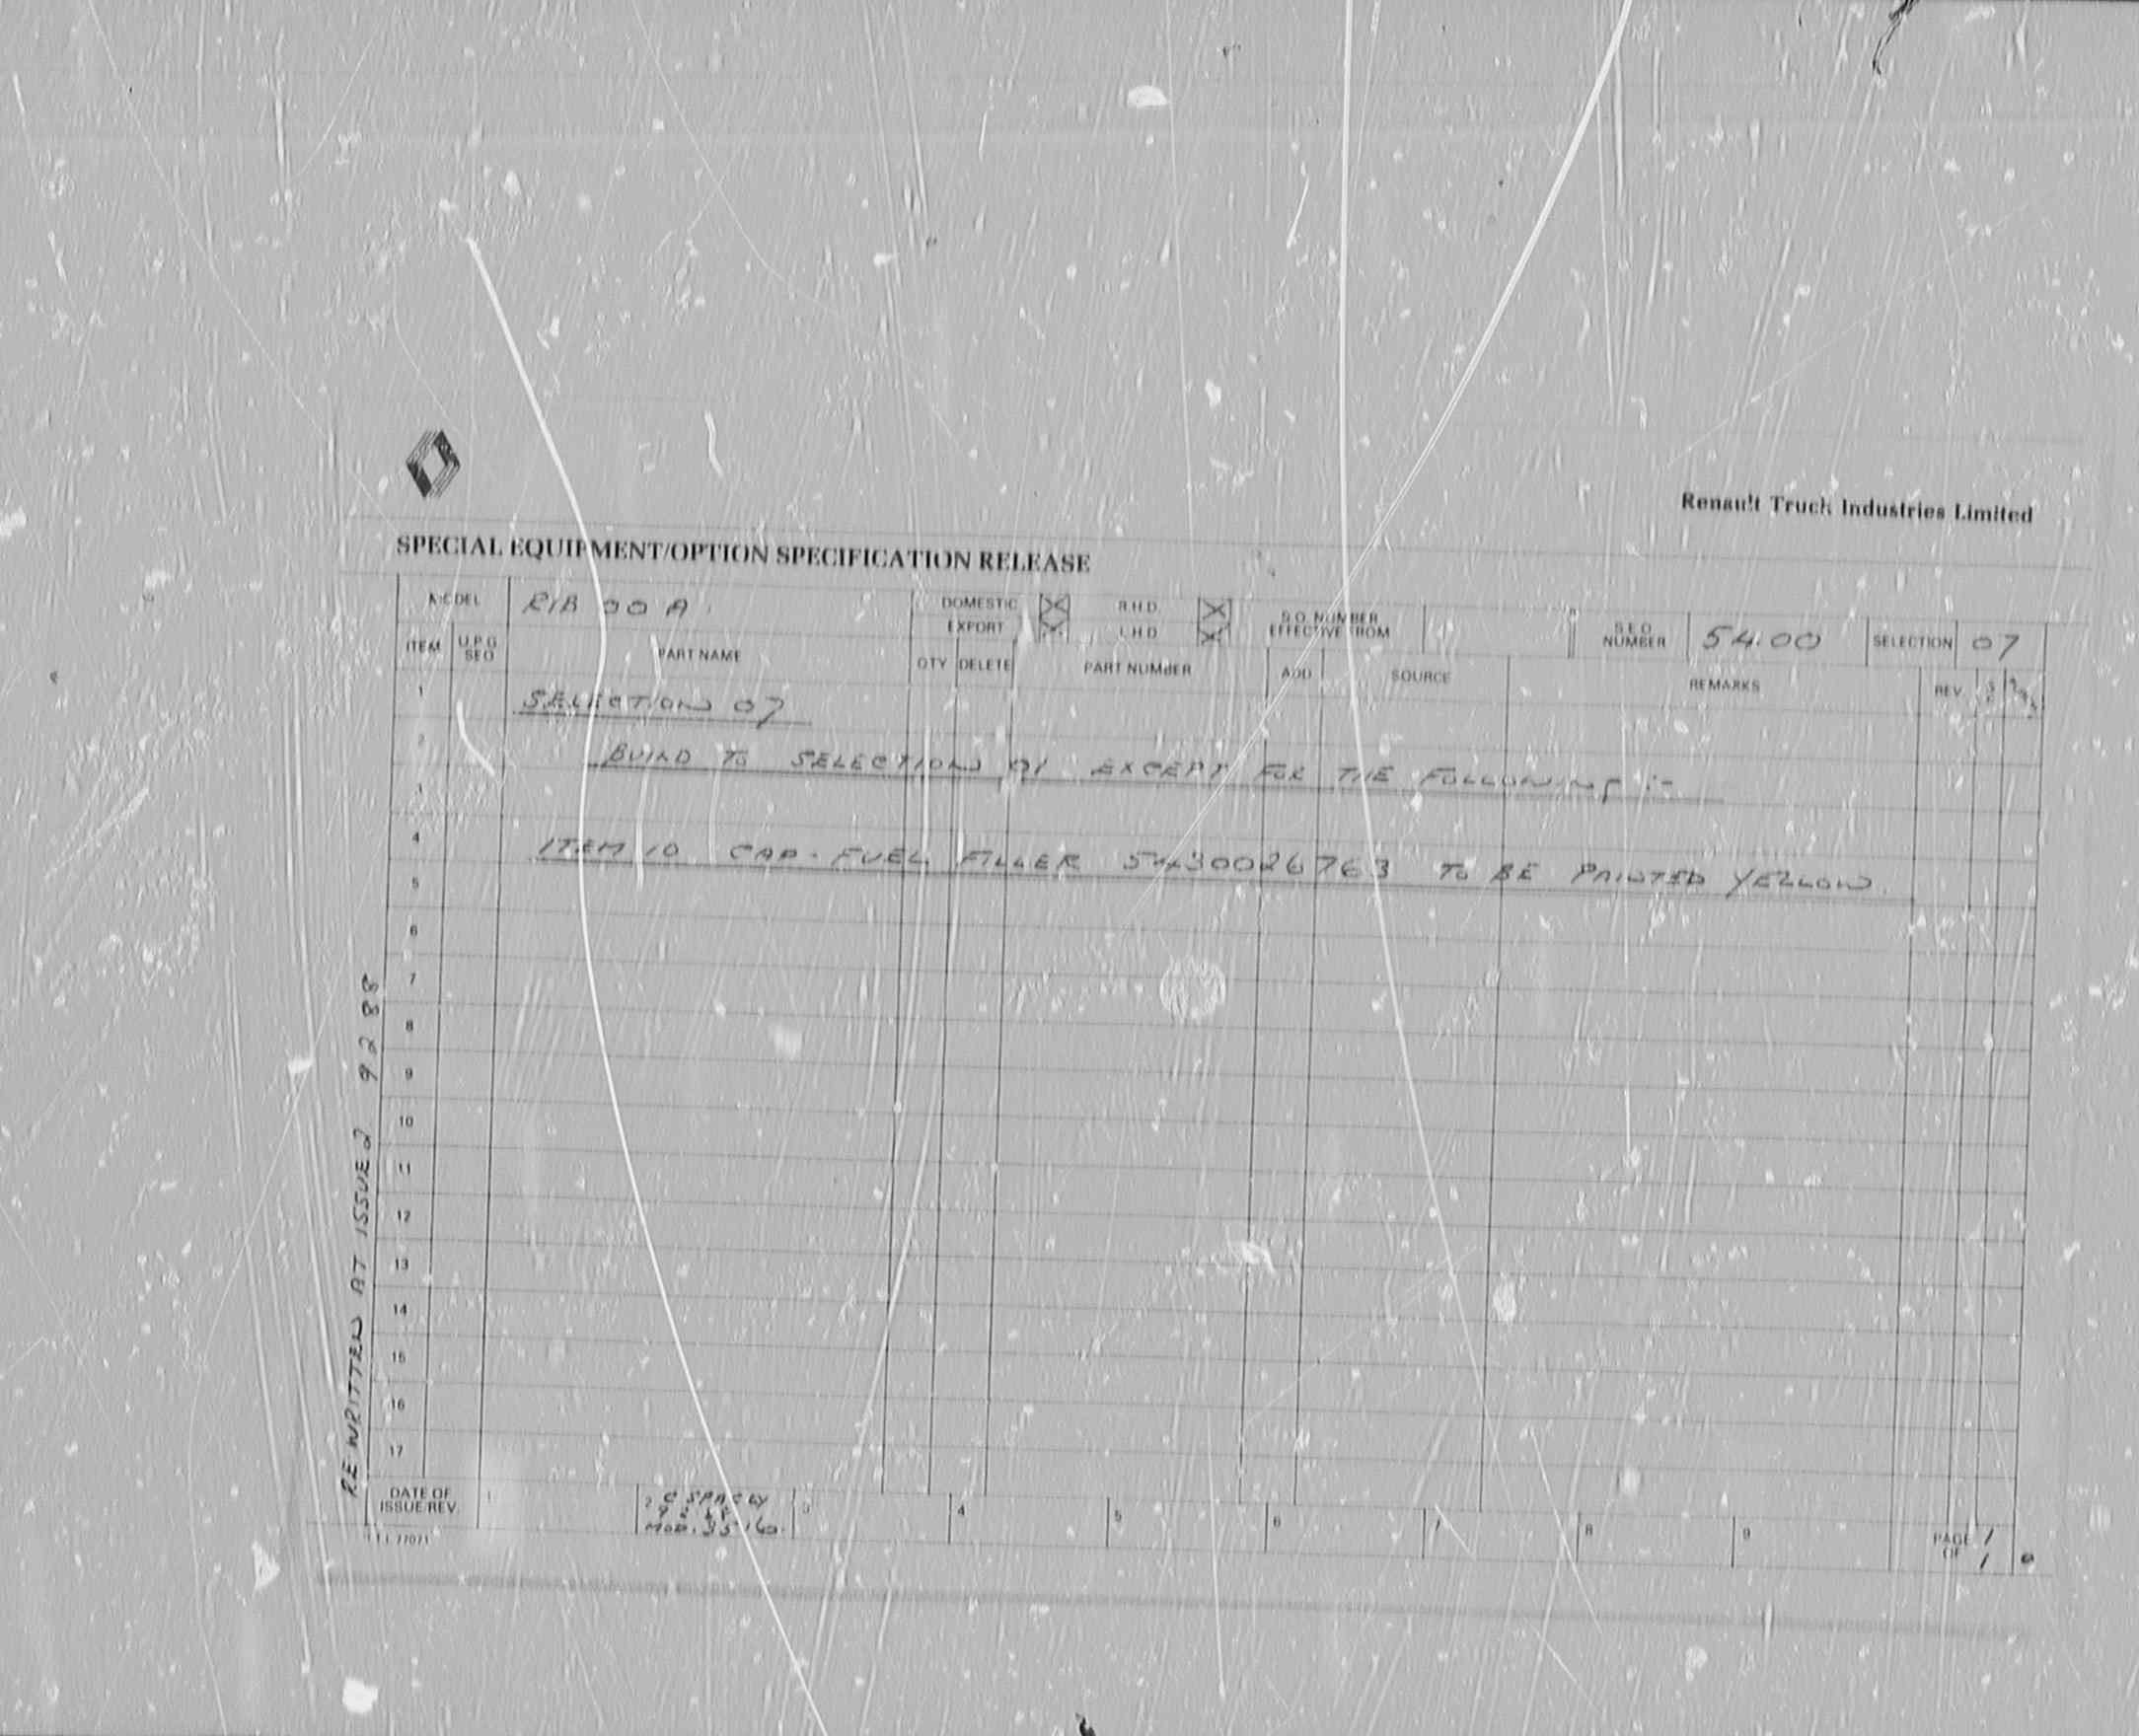 Renault Truck Industries Limited
SPECIAL EQUIPMENT/OPTION SPECIFICATION RELEASE
MODEL R1B 00 A DOMESTIC X R.H.D. X S.O. NUMBER EFFECTIVE FROM S.E.O. NUMBER 54.00 SELECTION 07
EXPORT X L.H.D X
ITEM U.P.G SEO PART NAME QTY DELETE PART NUMBER ADD SOURCE REMARKS REV
1 SELECTION 07
2 BUILD TO SELECTION 01 EXCEPT FOR THE FOLLOWING :-
3
4 ITEM 10 CAP-FUEL FILLER 5430026763 TO BE PAINTED YELLOW.
5
6
7
8
9
10
11
12
13
14
15
16
17
DATE OF ISSUE/REV. 1 2 3 4 5 6 7 8 9 PAGE 1 OF 1
77071
REWRITTEN AT ISSUE 2 9 2 88